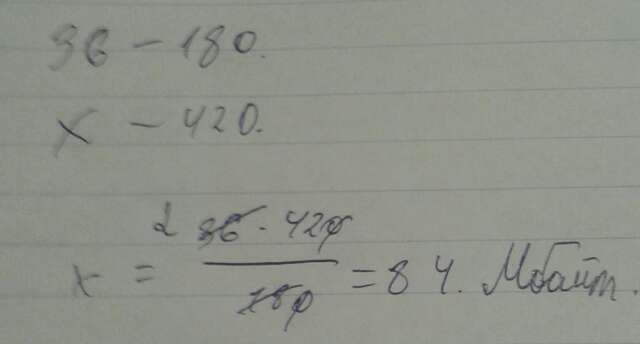 36 – 180.
x – 420.
x = 2 36 · 420 / 180 = 84. Мбайт.